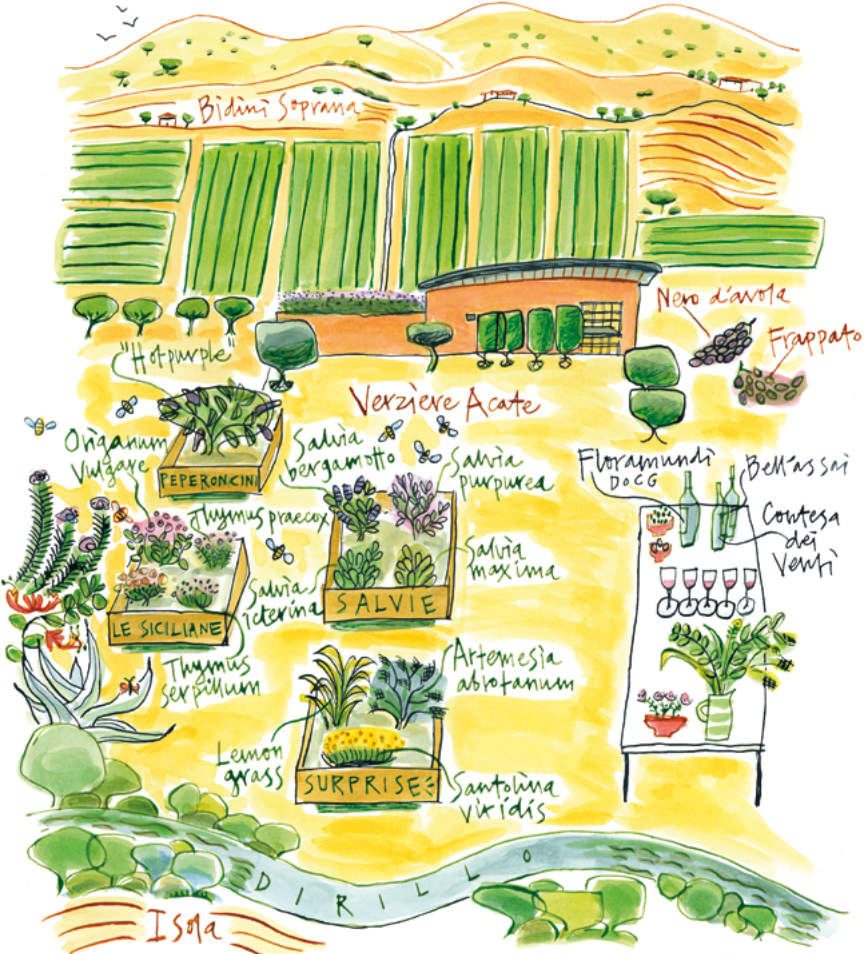 Bidini Soprana
Nero d'avola
Frappato
"Hotpurple"
Verziere Acate
Origanum
vulgare
PEPERONCINI
Salvia
bergamotto
Salvia
purpurea
Floramundi
DOCG
Bell'assai
Contesa
dei
Venti
Thymus praecox
Salvia
maxima
Salvia
icterina
SALVIE
LE SICILIANE
Thymus
serpillum
Artemesia
abrotanum
Lemon
grass
SURPRISE
Santolina
viridis
DIRILLO
Isola